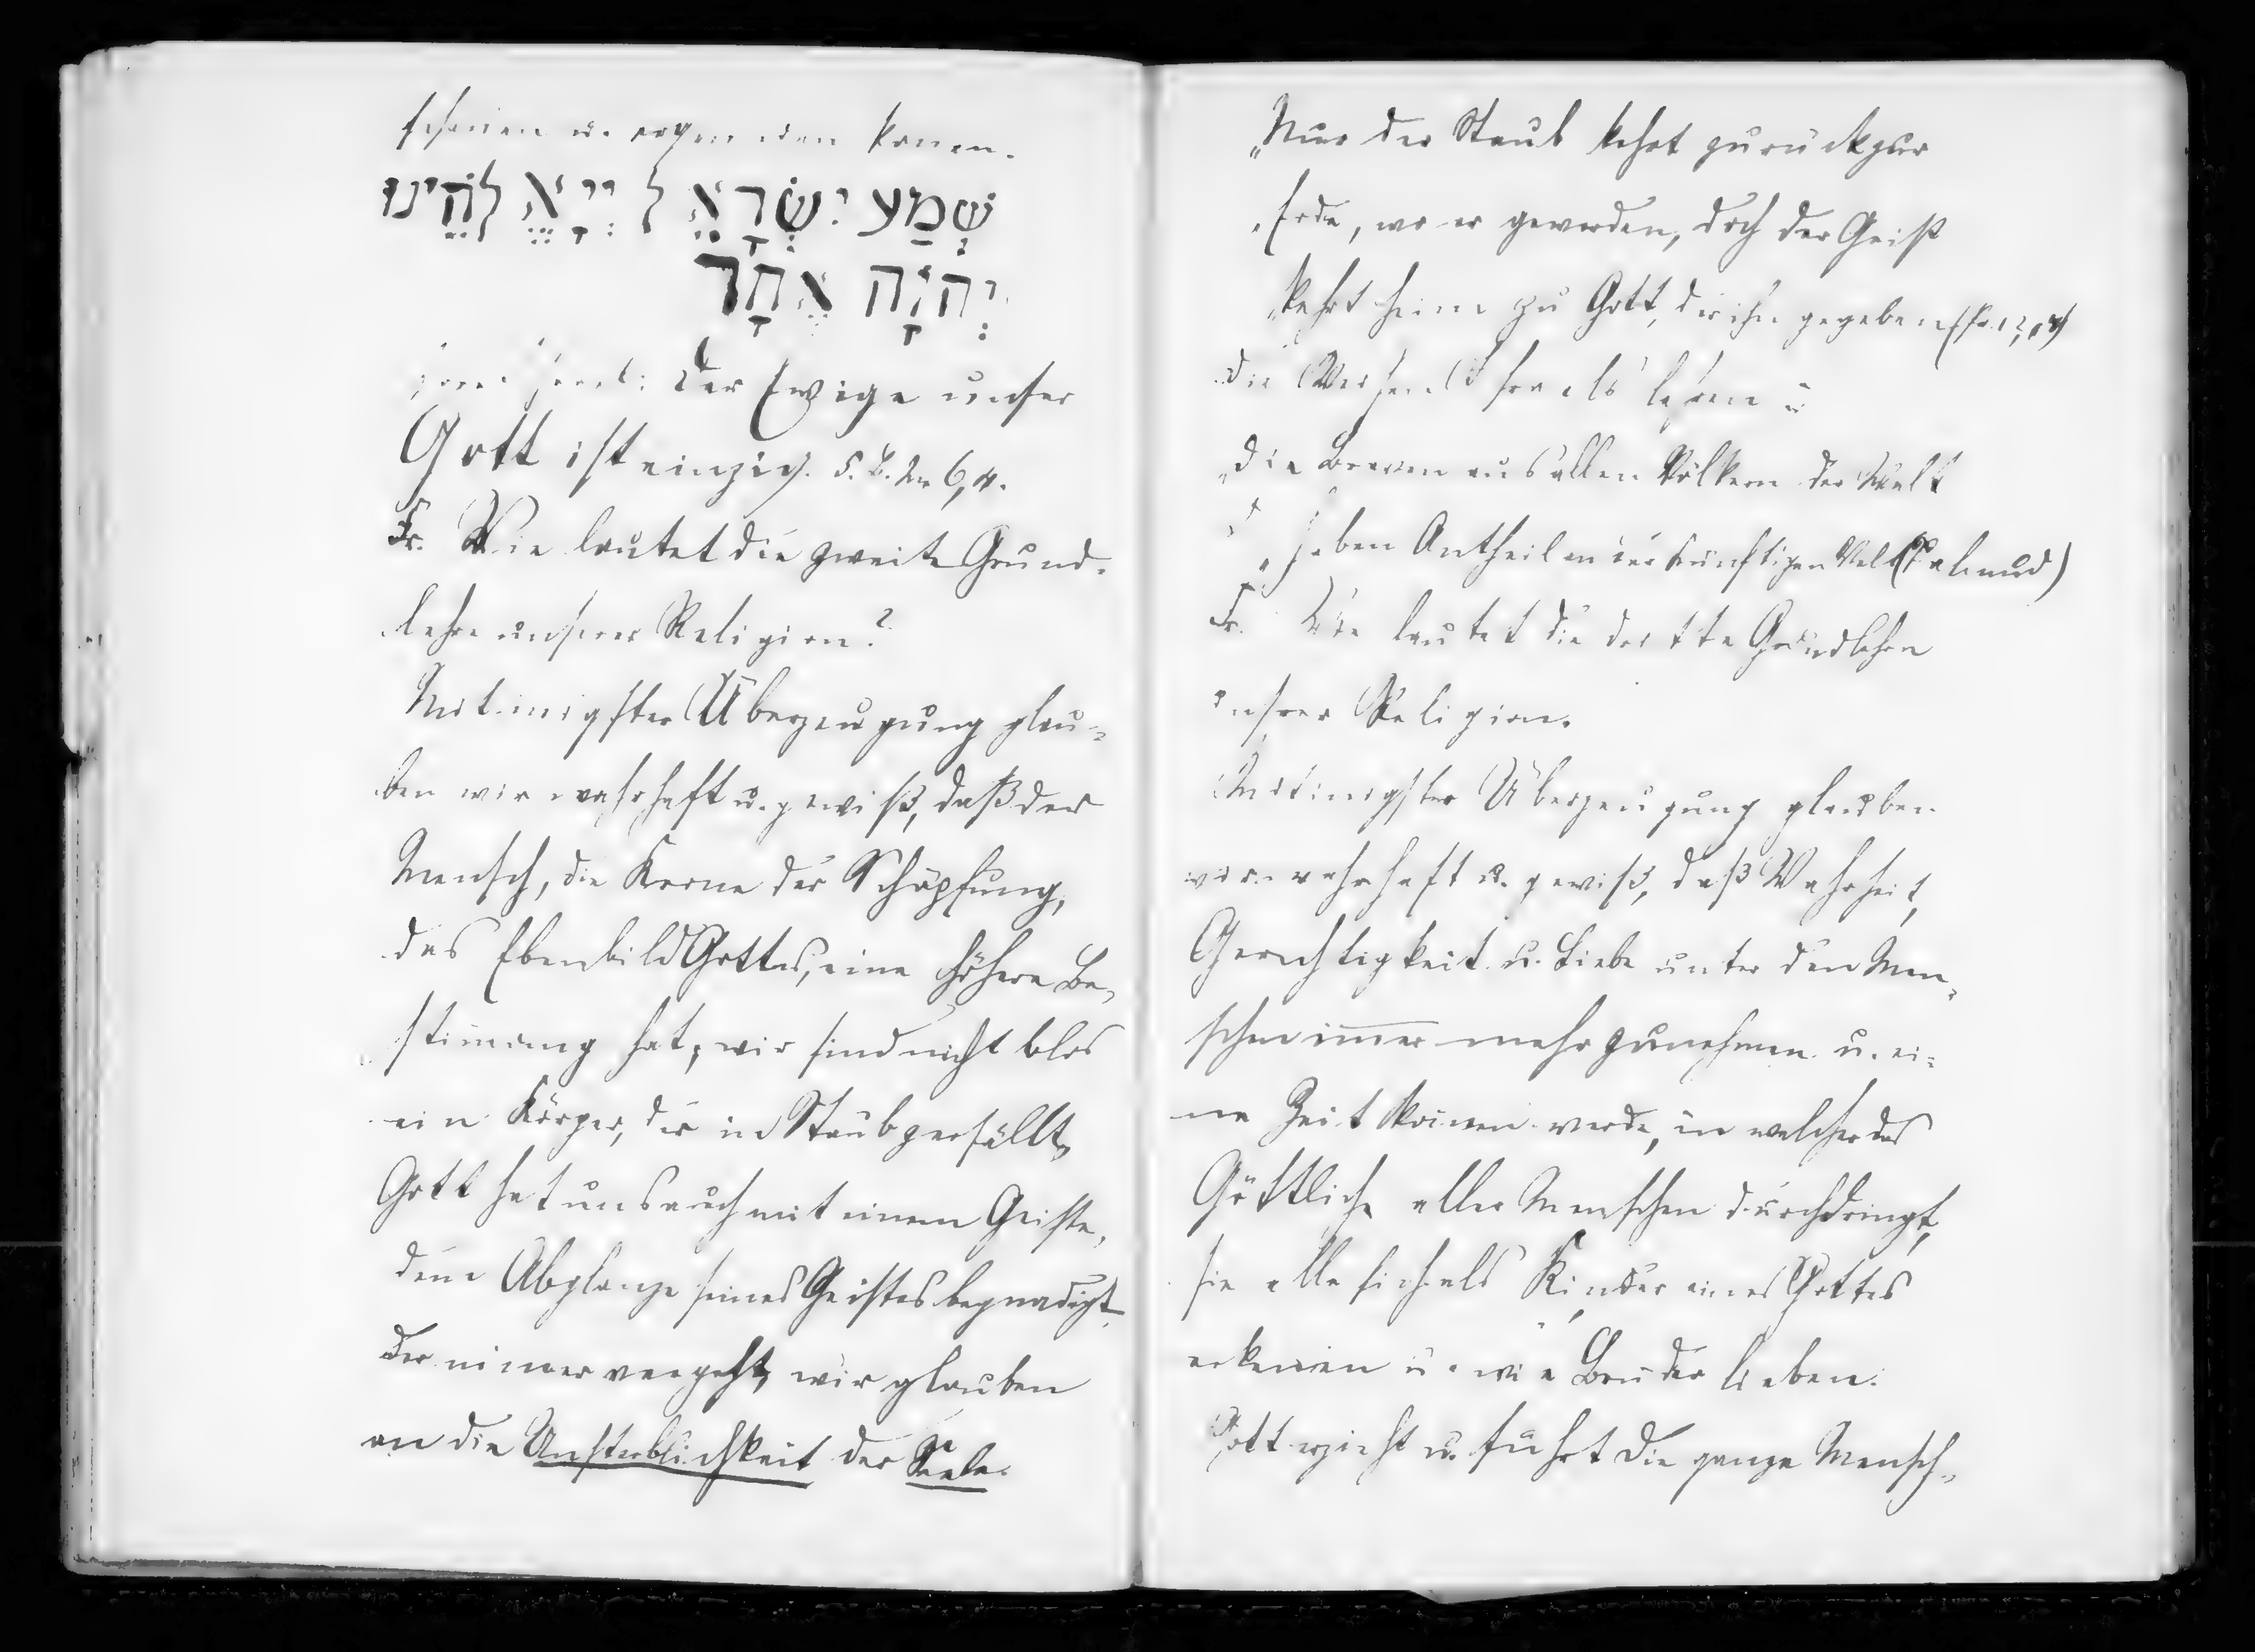 שְׁמַע יִשְׂרָאֵל יְיָ אֱלֹהֵינוּ
יְהוָה אֶחָד
Der Ewige unser
Gott ist einzig. 5. B. M. 6,4.
Fr. Wie lautet die zweite Grund-
lehre unserer Religion?
Mit innigster Überzeugung glau-
ben wir wahrhaft u. gewiß, daß der
Mensch, die Krone der Schöpfung,
das Ebenbild Gottes, eine höhere Be-
stimmung hat, wir sind nicht blos
ein Körper, der in Staub zerfällt,
Gott hat uns auch mit einem Geiste,
dem Abglanze seines Geistes begnadigt,
der nimmer vergeht, wir glauben
an die Unsterblichkeit der Seele.
„Nur der Staub kehrt zurück zur
„Erde, wo er geworden, doch der Geist
„kehrt heim zu Gott, der ihn gegeben
„die Braven aus allen Völkern der Welt
„haben Antheil an der künftigen Welt (Talmud)
Fr. Wie lautet die dritte Grundlehre
unsrer Religion.
Mit innigster Überzeugung glauben
wir wahrhaft u. gewiß, daß Wahrheit,
Gerechtigkeit u. Liebe unter den Men-
schen immer mehr zunehmen u. ei-
ne Zeit kommen werde, in welcher das
Göttliche alle Menschen durchdringt,
sie alle sich als Kinder eines Gottes
erkennen u. wie Brüder lieben.
Gott erzieht u. führt die ganze Mensch-